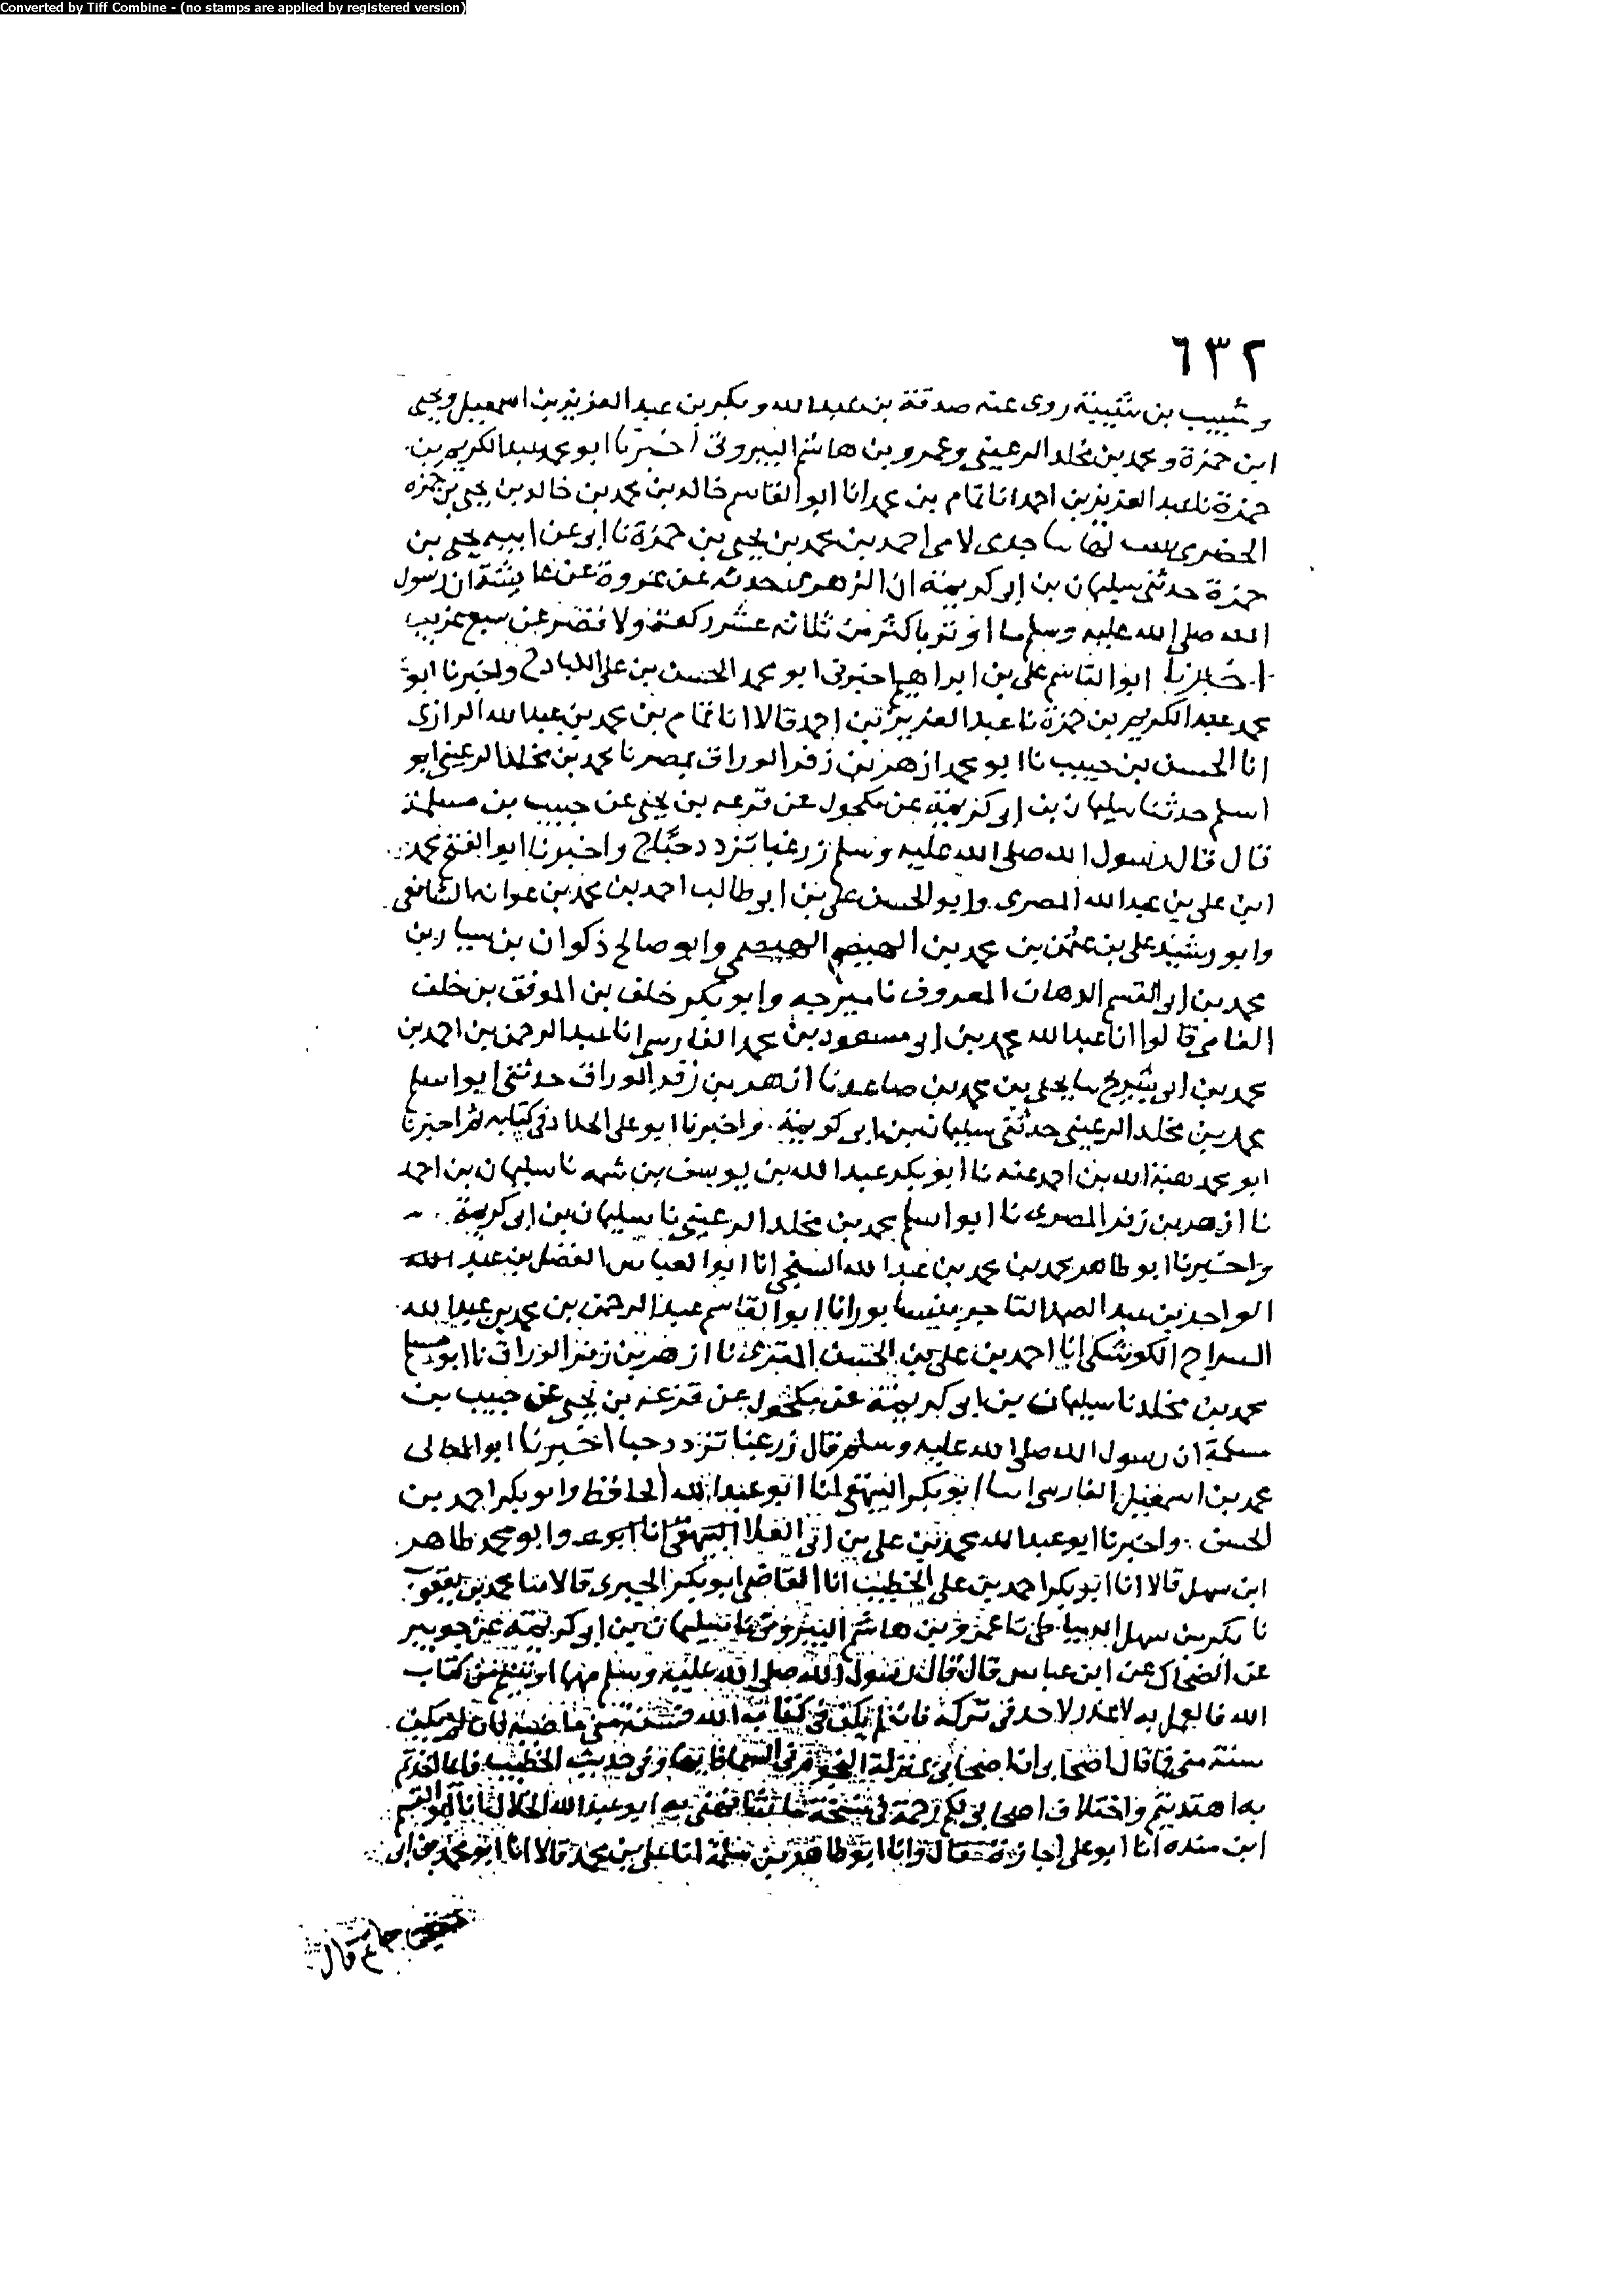 Converted by Tiff Combine - (no stamps are applied by registered version)
٦٣٢
وشبيب بن شيبة روى عنه صدقة بن عبد الله وبكر بن عبد العزيز بن اسمعيل ويحيى
ابن حمزة ومحمد بن مخلد الرعيني وعمرو بن هاشم البيروتي اخبرنا ابو محمد عبد الكريم بن
حمزة نا عبد العزيز بن احمد انا تمام بن محمد انا ابو القاسم خالد بن محمد بن خالد بن يحيى بن حمزه
الحضرمي جدى لامى احمد بن محمد بن يحيى بن حمزة نا ابى عن ابيه يحيى بن
حمزة حدثنى سليمان بن ابى كريمة ان الزهرى حدثه عن عروة عن عايشة ان رسول
الله صلى الله عليه وسلم ما اوتر باكثر من ثلاثه عشر ركعة ولا قصر عن سبع غريب
اخبرنا ابو القاسم على بن ابراهيم اخبرنى ابو محمد الحسن بن على اللباد ح واخبرنا ابو
محمد عبد الكريم بن حمزة نا عبد العزيز بن احمد قالا انا تمام بن محمد بن عبد الله الرازى
انا الحسن بن حبيب نا ابو محمد ازهر بن زفر الوراق بمصر نا محمد بن مخلد الرعينى ابو
اسلم حدثنا سليمان بن ابى كريمة عن مكحول عن قزعه بن يحيى عن حبيب بن مسلمة
قال قال رسول الله صلى الله عليه وسلم زر غبا تزدد حبا ح واخبرنا ابو الفتح محمد
ابن على بن عبد الله المصرى وابو الحسن على بن ابى طالب احمد بن محمد بن عوانه الشافعى
وابو رشيد على بن عثمن بن محمد بن الهيضم الهيصمى وابو صالح ذكوان بن سيار بن
محمد بن ابى القسم الدهان المعروف ناميرجه وابو بكر خلف بن الموفق بن خلف
الفامى قالوا انا عبد الله محمد بن ابى مسعود بن محمد الفارسى انا عبد الرحمن بن احمد بن
محمد بن ابى شريح نا يحيى بن محمد بن صاعد نا ازهر بن زفر الوراق حدثنى ابو اسلم
محمد بن مخلد الرعينى حدثنى سليمان بن ابى كريمة واخبرنا ابو على الحداد فى كتابه ثم اخبرنا
ابو محمد هبة الله بن احمد عنه نا ابو بكر عبد الله بن يوسف بن شمه نا سليمان بن احمد
نا ازهر بن زفر المصرى نا ابو اسلم محمد بن مخلد الرعينى نا سليمان بن ابى كريمة
واخبرنا ابو طاهر محمد بن محمد بن عبد الله السنجى انا ابو العباس الفضل بن عبد
الواحد بن عبد الصمد التاجر بنيسابور انا ابو القاسم عبد الرحمن بن محمد بن عبد الله
السراج الكوشكى انا احمد بن على بن الحسن المقرى نا ازهر بن زفر الوراق نا ابو مسلم
محمد بن مخلد نا سليمان بن ابى كريمة عن مكحول عن قزعه بن يحيى عن حبيب بن
مسلمة ان رسول الله صلى الله عليه وسلم قال زر غبا تزدد حبا اخبرنا ابو المعالى
محمد بن اسمعيل الفارسى انا ابو بكر البيهقى انا ابو عبد الله الحافظ وابو بكر احمد بن
الحسن واخبرنا ابو عبد الله محمد بن على بن ابى العلا وابو محمد طاهر
ابن سهل قالا انا ابو بكر احمد بن على الخطيب انا القاضى ابو بكر الحيرى قالا نا محمد بن يعقوب
نا بكر بن سهل الدمياطى نا عمرو بن هاشم البيروتى نا سليمان بن ابى كريمة عن جويبر
عن الضحاك عن ابن عباس قال قال رسول الله صلى الله عليه وسلم مهما اوتيتم من كتاب
الله فالعمل به لا عذر لاحد فى تركه فان لم يكن فى كتاب الله فسنة منى ماضية فان لم يكن
سنة منى فما قال اصحابى ان اصحابى بمنزلة النجوم فى السما وفى حديث الخطيب فايما اخذتم
به اهتديتم واختلاف اصحابى لكم رحمة فى نسخة ابو عبد الله الخلال انا ابو القسم
ابن منده انا ابو على اجازة قال وانا ابو طاهر بن سلمة انا على بن محمد قالا انا ابو محمد بن ابى
حاتم قال